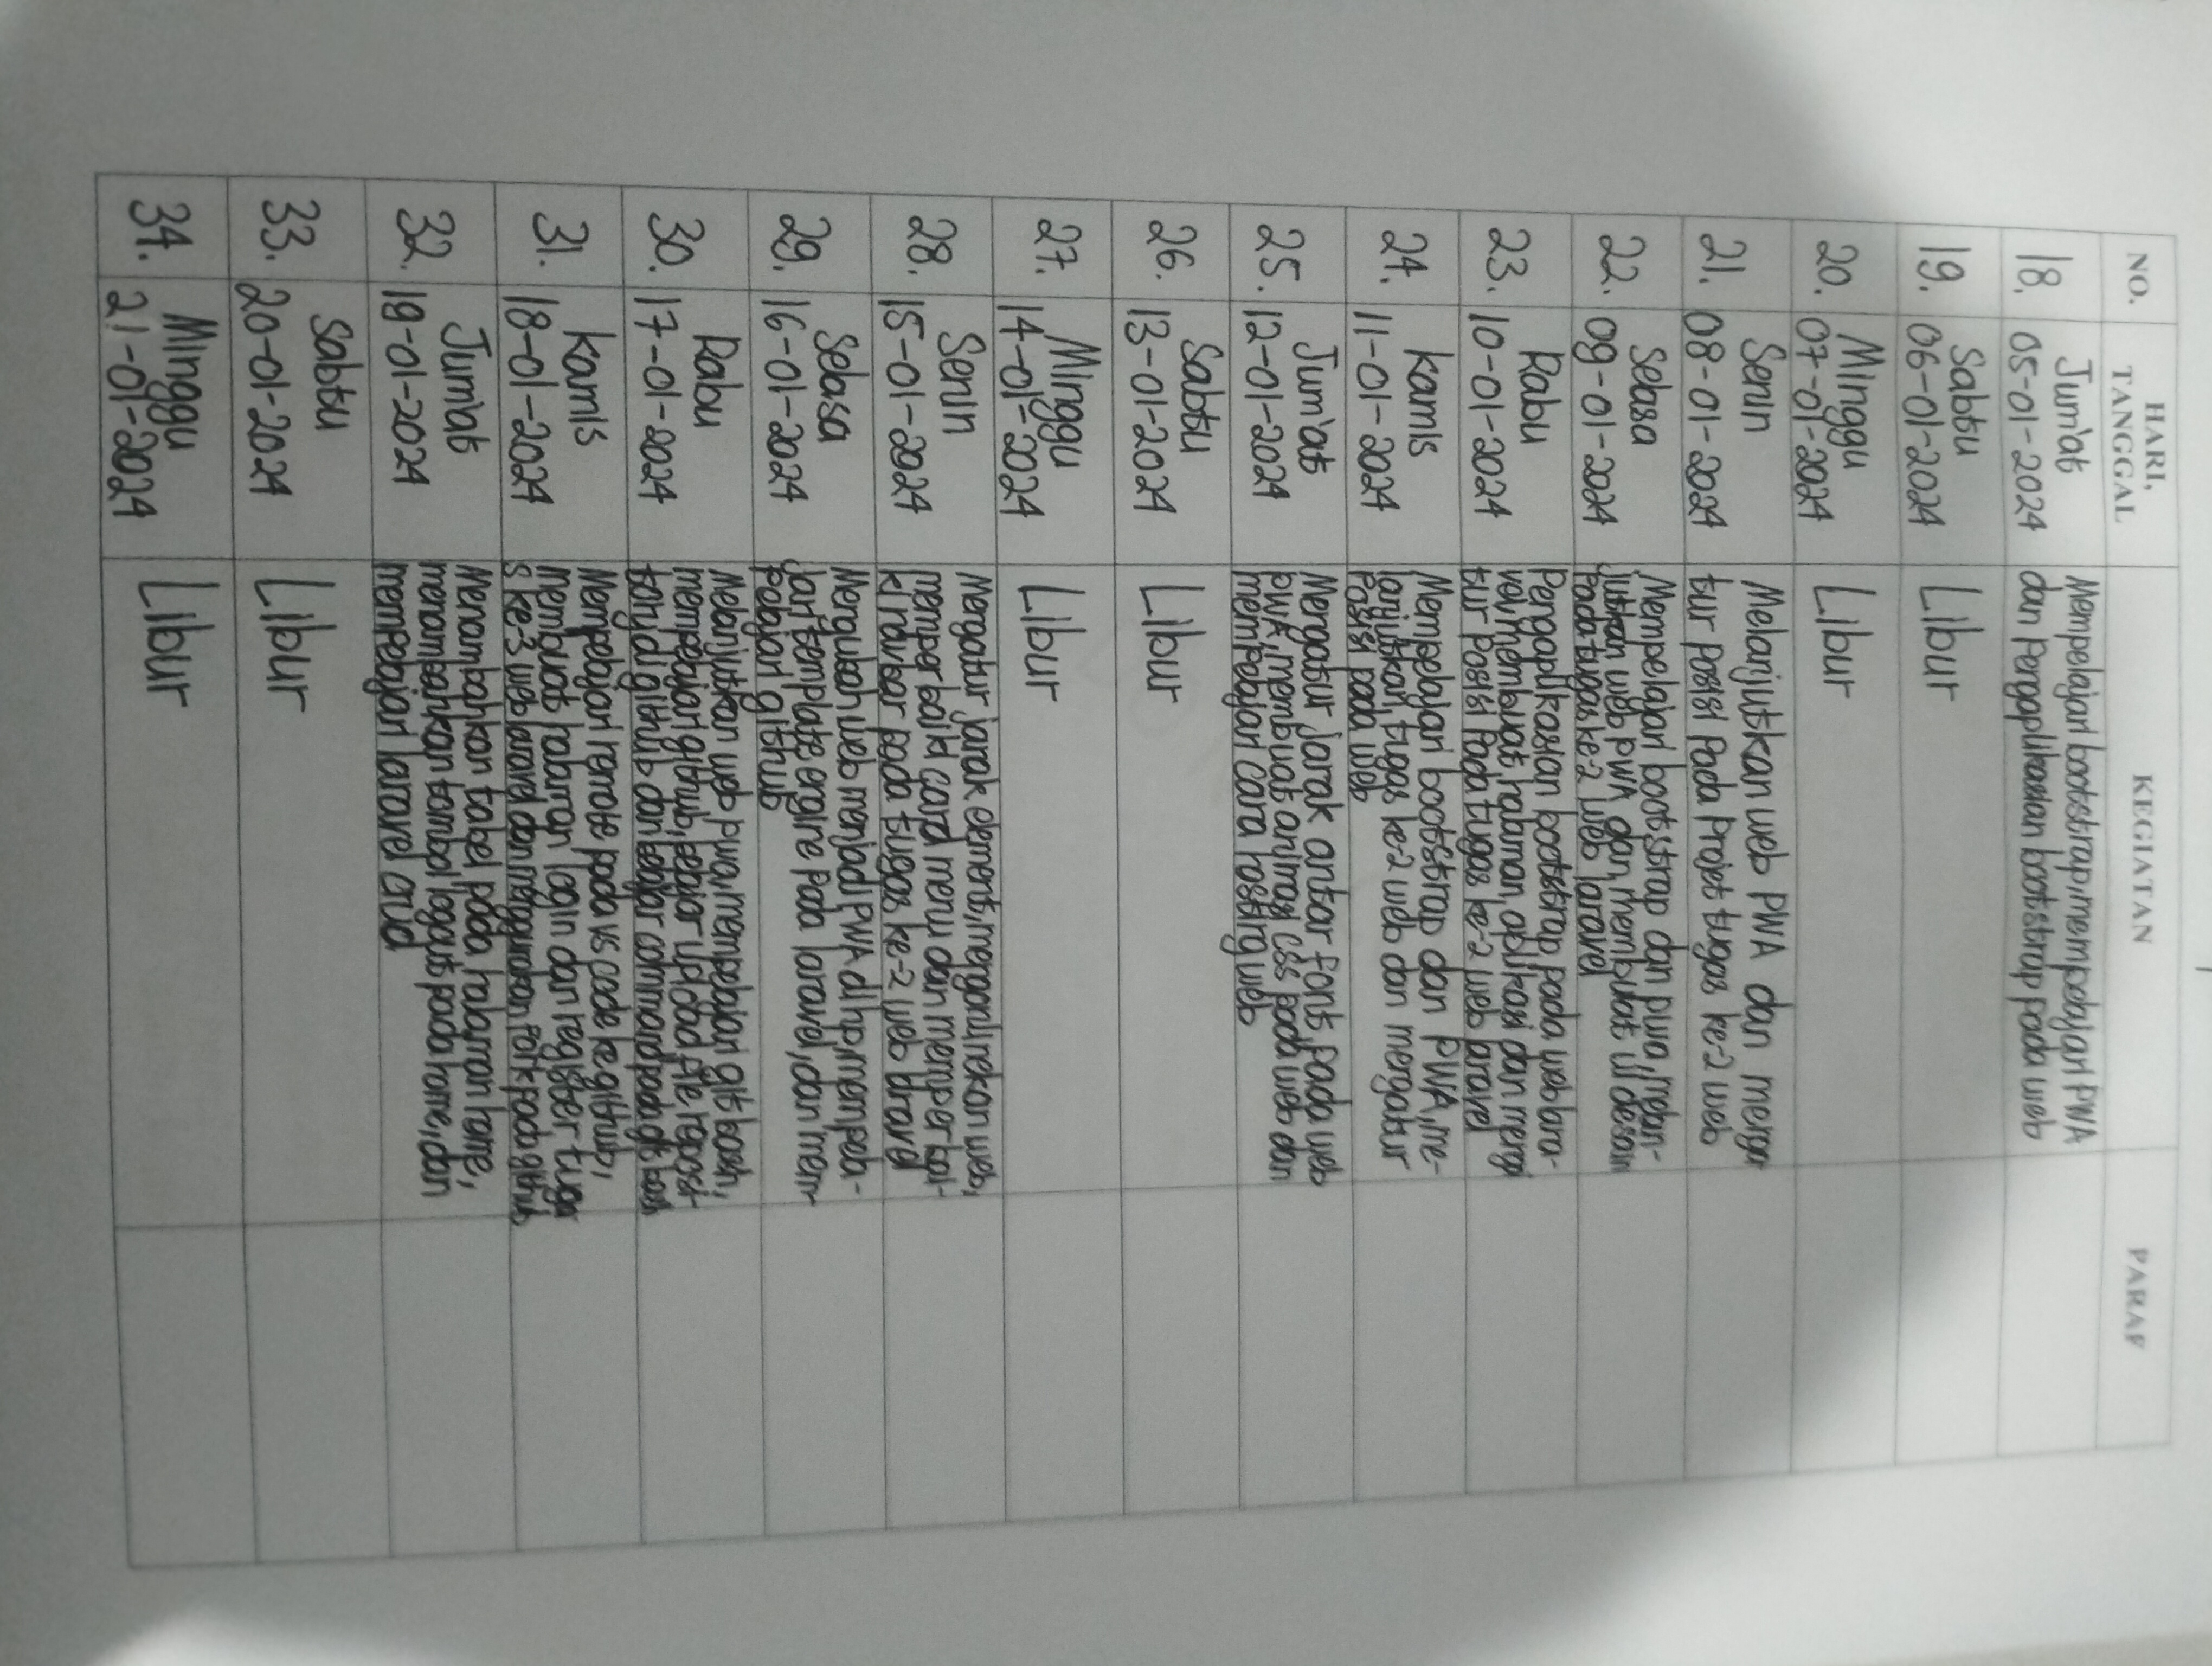 NO. HARI, TANGGAL KEGIATAN PARAF
18. Jum'at 05-01-2024
Mempelajari bootstrap, mempelajari PWA
dan Pengaplikasian bootsstrap pada web
19. Sabtu 06-01-2024 Libur
20. Minggu 07-01-2024 Libur
21. Senin 08-01-2024
Melanjutkan web PWA dan menga
tur posisi pada Projet tugas ke-2 web
22. Selasa 09-01-2024
Mempelajari bootsstrap dan pwa, melan-
jutkan web PWA dan membuat ui desain
pada tugas ke-2 web laravel
23. Rabu 10-01-2024
Pengaplikasian bootsstrap pada web lara-
vel, membuat halaman aplikasi dan menga
tur Posisi Pada tugas ke-2 web laravel
24. Kamis 11-01-2024
Mempelajari bootstrap dan PWA, me-
lanjutkan tugas ke-2 web dan mengatur
posisi pada web
25. Jum'at 12-01-2024
Mengatur jarak antar fonts pada web
PWA, membuat animasi css pada web dan
mempelajari cara hosting web
26. Sabtu 13-01-2024 Libur
27. Minggu 14-01-2024 Libur
28. Senin 15-01-2024
Mengatur jarak element, mengonlinekan web,
memperbaiki card menu dan memperbai-
ki navbar pada tugas ke-2 web laravel
29. Selasa 16-01-2024
Mengubah web menjadi PWA di hp, mempela-
jari template engine pada laravel, dan mem-
pelajari github
30. Rabu 17-01-2024
Melanjutkan web pwa, mempelajari git bash,
mempelajari github, belajar upload file reposi-
tory di github dan belajar command pada git bash
31. Kamis 18-01-2024
Mempelajari remote pada vs code ke github,
Membuat halaman login dan register tuga
s ke-3 web laravel dan menggunakan fork pada github
32. Jum'at 19-01-2024
Menambahkan tabel pada halaman home,
menambahkan tombol logout pada home, dan
mempelajari laravel crud
33. Sabtu 20-01-2024 Libur
34. Minggu 21-01-2024 Libur